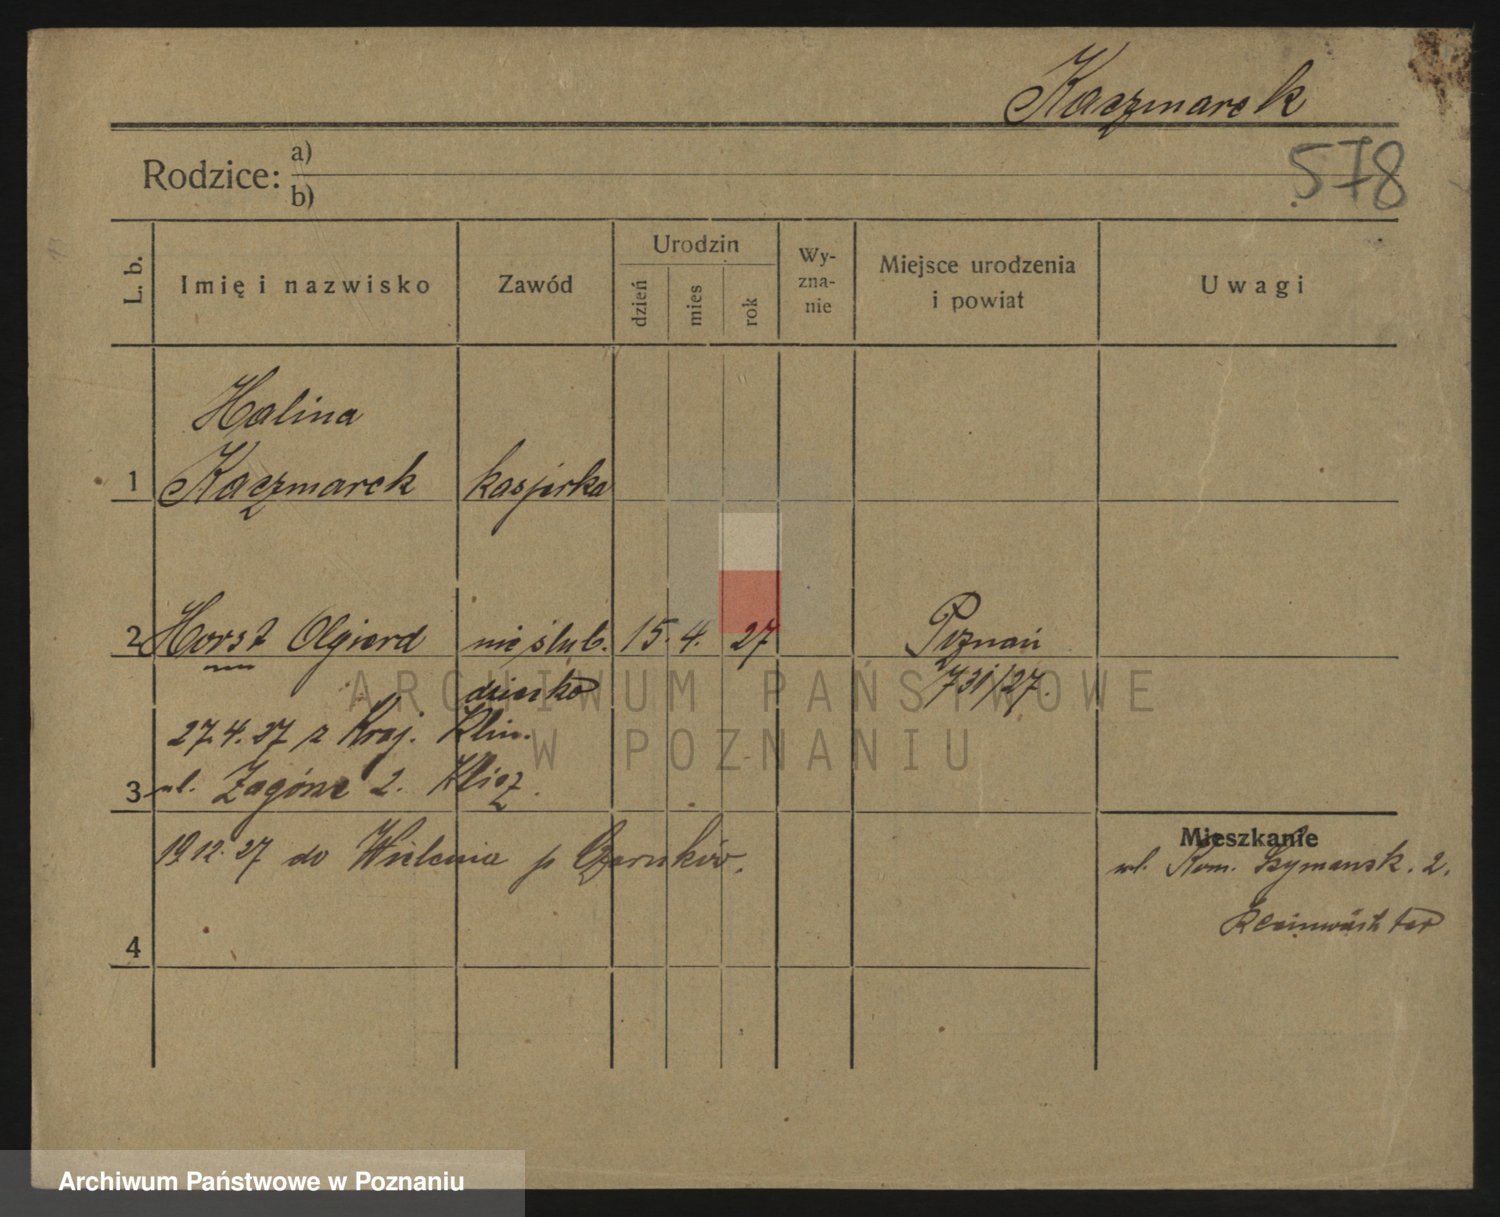 Kaczmarek
578
Rodzice: a)
b)
L. b.
Imię i nazwisko
Zawód
Urodzin
dzień
mies
rok
Wy-
zna-
nie
Miejsce urodzenia
i powiat
Uwagi
Halina
1 Kaczmarek kasjerka
2 Horst Olgierd nieślub. 15. 4. 27 Poznań
dziecko 731/27.
27.4.27 z Kraj. Klin.
3 ul. Zagórze 2.
19.12.27 do Wielenia p Czarnków.
Mieszkanie
Szymansk. 2.
Kleinwächter
4
ARCHIWUM PAŃSTWOWE
W POZNANIU
Archiwum Państwowe w Poznaniu